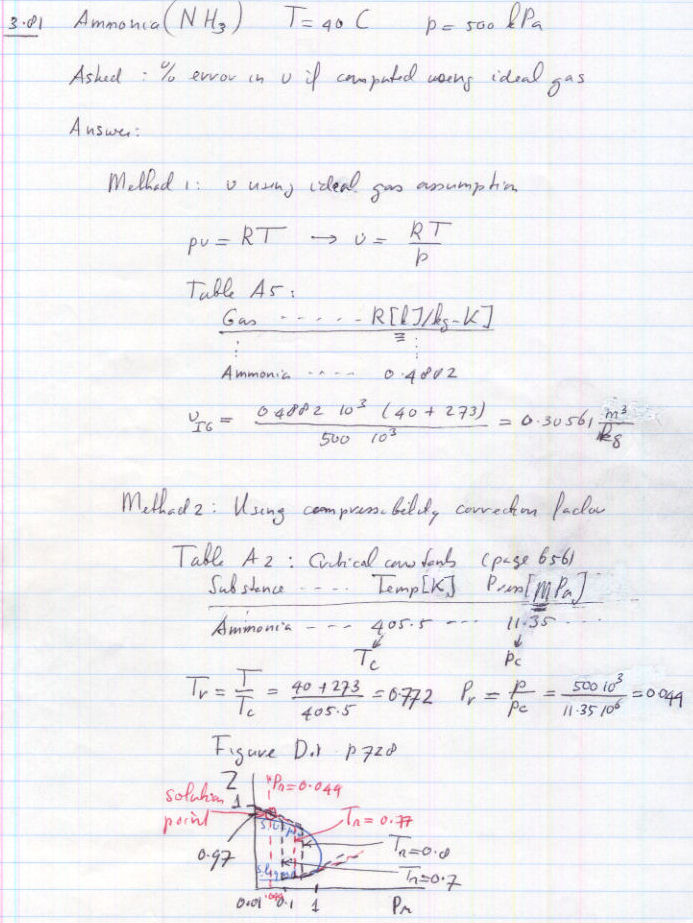 3.81 Ammonia (NH3) T = 40 C p = 500 kPa
Asked : % error in v if computed using ideal gas
Answer:
Method 1: v using ideal gas assumption
pv = RT → v = RT / p
Table A5:
Gas ...... R[kJ/kg-K]
⋮ ⋮
Ammonia .... 0.4882
vIG = 0.4882 10^3 (40 + 273) / 500 10^3 = 0.30561 m^3/kg
Method 2: Using compressibility correction factor
Table A2 : Critical constants (page 656)
Substence .... Temp[K] Press[MPa]
Ammonia --- 405.5 --- 11.35 ....
Tc pc
Tr = T/Tc = 40 + 273 / 405.5 = 0.772 Pr = p/pc = 500 10^3 / 11.35 10^6 = 0.044
Figure D.1 p 728
Z Pr = 0.044
solution 1
point Tr = 0.77
0.97 Tr = 0.8
Tr = 0.7
0.01 0.1 1 Pr